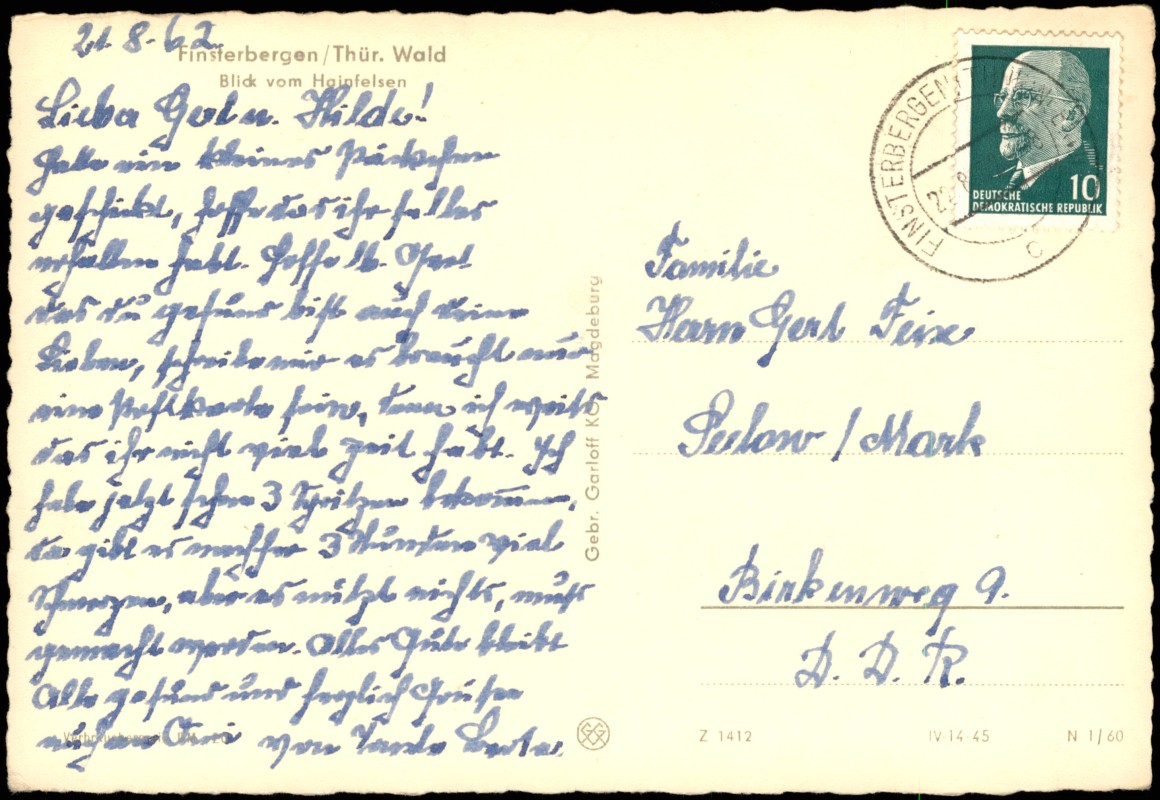 21.8.62
Finsterbergen/Thür. Wald
Blick vom Hainfelsen
Liebe Gerl u. Hilde!
Habe ein kleines Päckchen
geschickt, hoffe das ihr selbes
erhalten habt. Hoffe lb. Gerl
das du gesund bist auch deine
Lieben, schreibe mir es braucht nur
eine Postkarte sein, denn ich weiß
das ihr nicht viel Zeit habt. Ich
habe jetzt schon 3 Spritzen bekommen,
da gibt es nachher 3 Stunden viel
Schmerzen, aber es nützt nichts, muß
gemacht werden. Alles Gute bleibt
Alle gesund und herzlich Grüße
auch an von Tante
Gebr. Garloff KG, Magdeburg
FINSTERBERGEN
22.8
C
DEUTSCHE
DEMOKRATISCHE REPUBLIK
10
Familie
Herrn Gerl Feix
Seelow / Mark
Birkenweg 9.
D. D. R.
Z 1412
IV-14-45
N 1/60